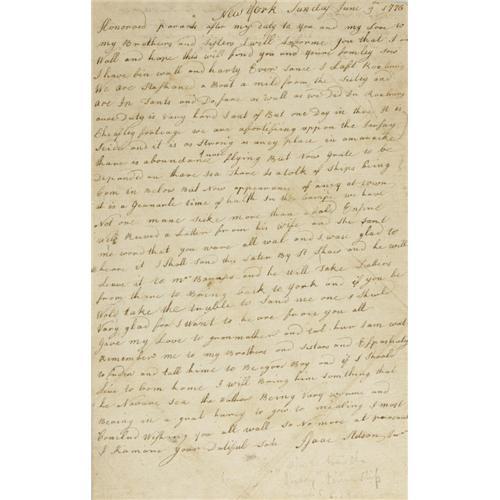 New York Sunday June 9 1776
Honored parance after my duty to you and my Love to
my Brothers and Sisters I will Informe you that I am
Wall and hope this will find you and youre familey soo
I have bin wall and harty Ever Sance I Left Roxbury
We Are Stashand a Bout a mild from the Sitey and
Are In Tants and Dafare as wall as we Did In Roxbury
oure Duty is Vary hard Sant of But one Day in thre It is
Cheafley footeage we are a fortifiing appon the
and it is as Strong as aney place in amaracke
thare is aboundance of news flying But Now grate to be
Dapanded on thare Sea Thare is a talk of Ships being
Com in Below But Now appearance of aney at town
it is a Genarale time of health In the Camps we have
Not one mane Sicke more than a Cald Ensine
Will Receved a Latter from his Wife and She Sant
me word that you ware all wal and I wase glad to
heare it I Shall Sand this Later By and he will
Leave it to Mr and he Will Take Latters
from thare to Bring back to York and if you be
Wold take the truble to Sand me one I Shuld
Vary glad for I Want to heare from you all
Give my Love to grammother and tal hur I am wal
Remember me to my Brothers and Sistars and Espashaley
to and tall hime to Be a good Boy and if I Should
Live to Com home I will Bring him Something that
he Navare Sea the Wather Being Vary warme and
Beaing in a grat harrey to gow to meating I must
Conclud Wishing you all wall So No more at preasant
I Ramane Your Dutiful Sole Isaac